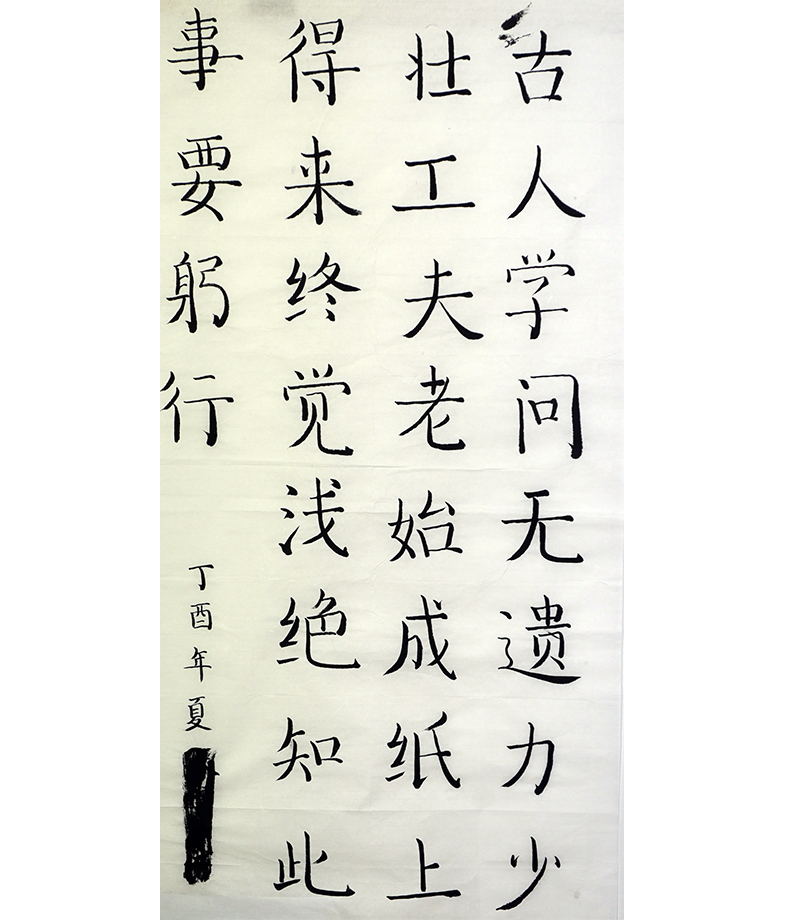 古人学问无遗力少
壮工夫老始成纸上
得来终觉浅绝知此
事要躬行
丁酉年夏